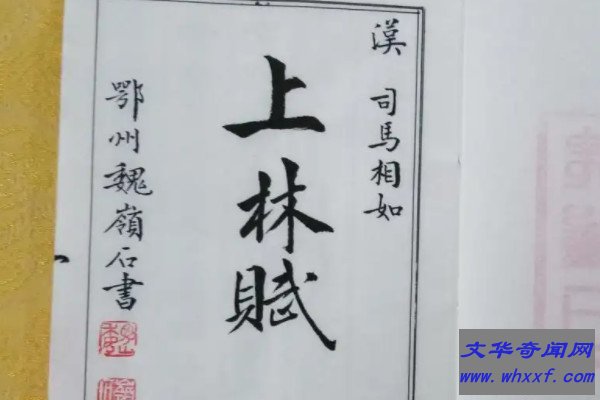 漢 司馬相如
上林賦
鄂州魏嶺石書
文华奇闻网
www.whxxf.com